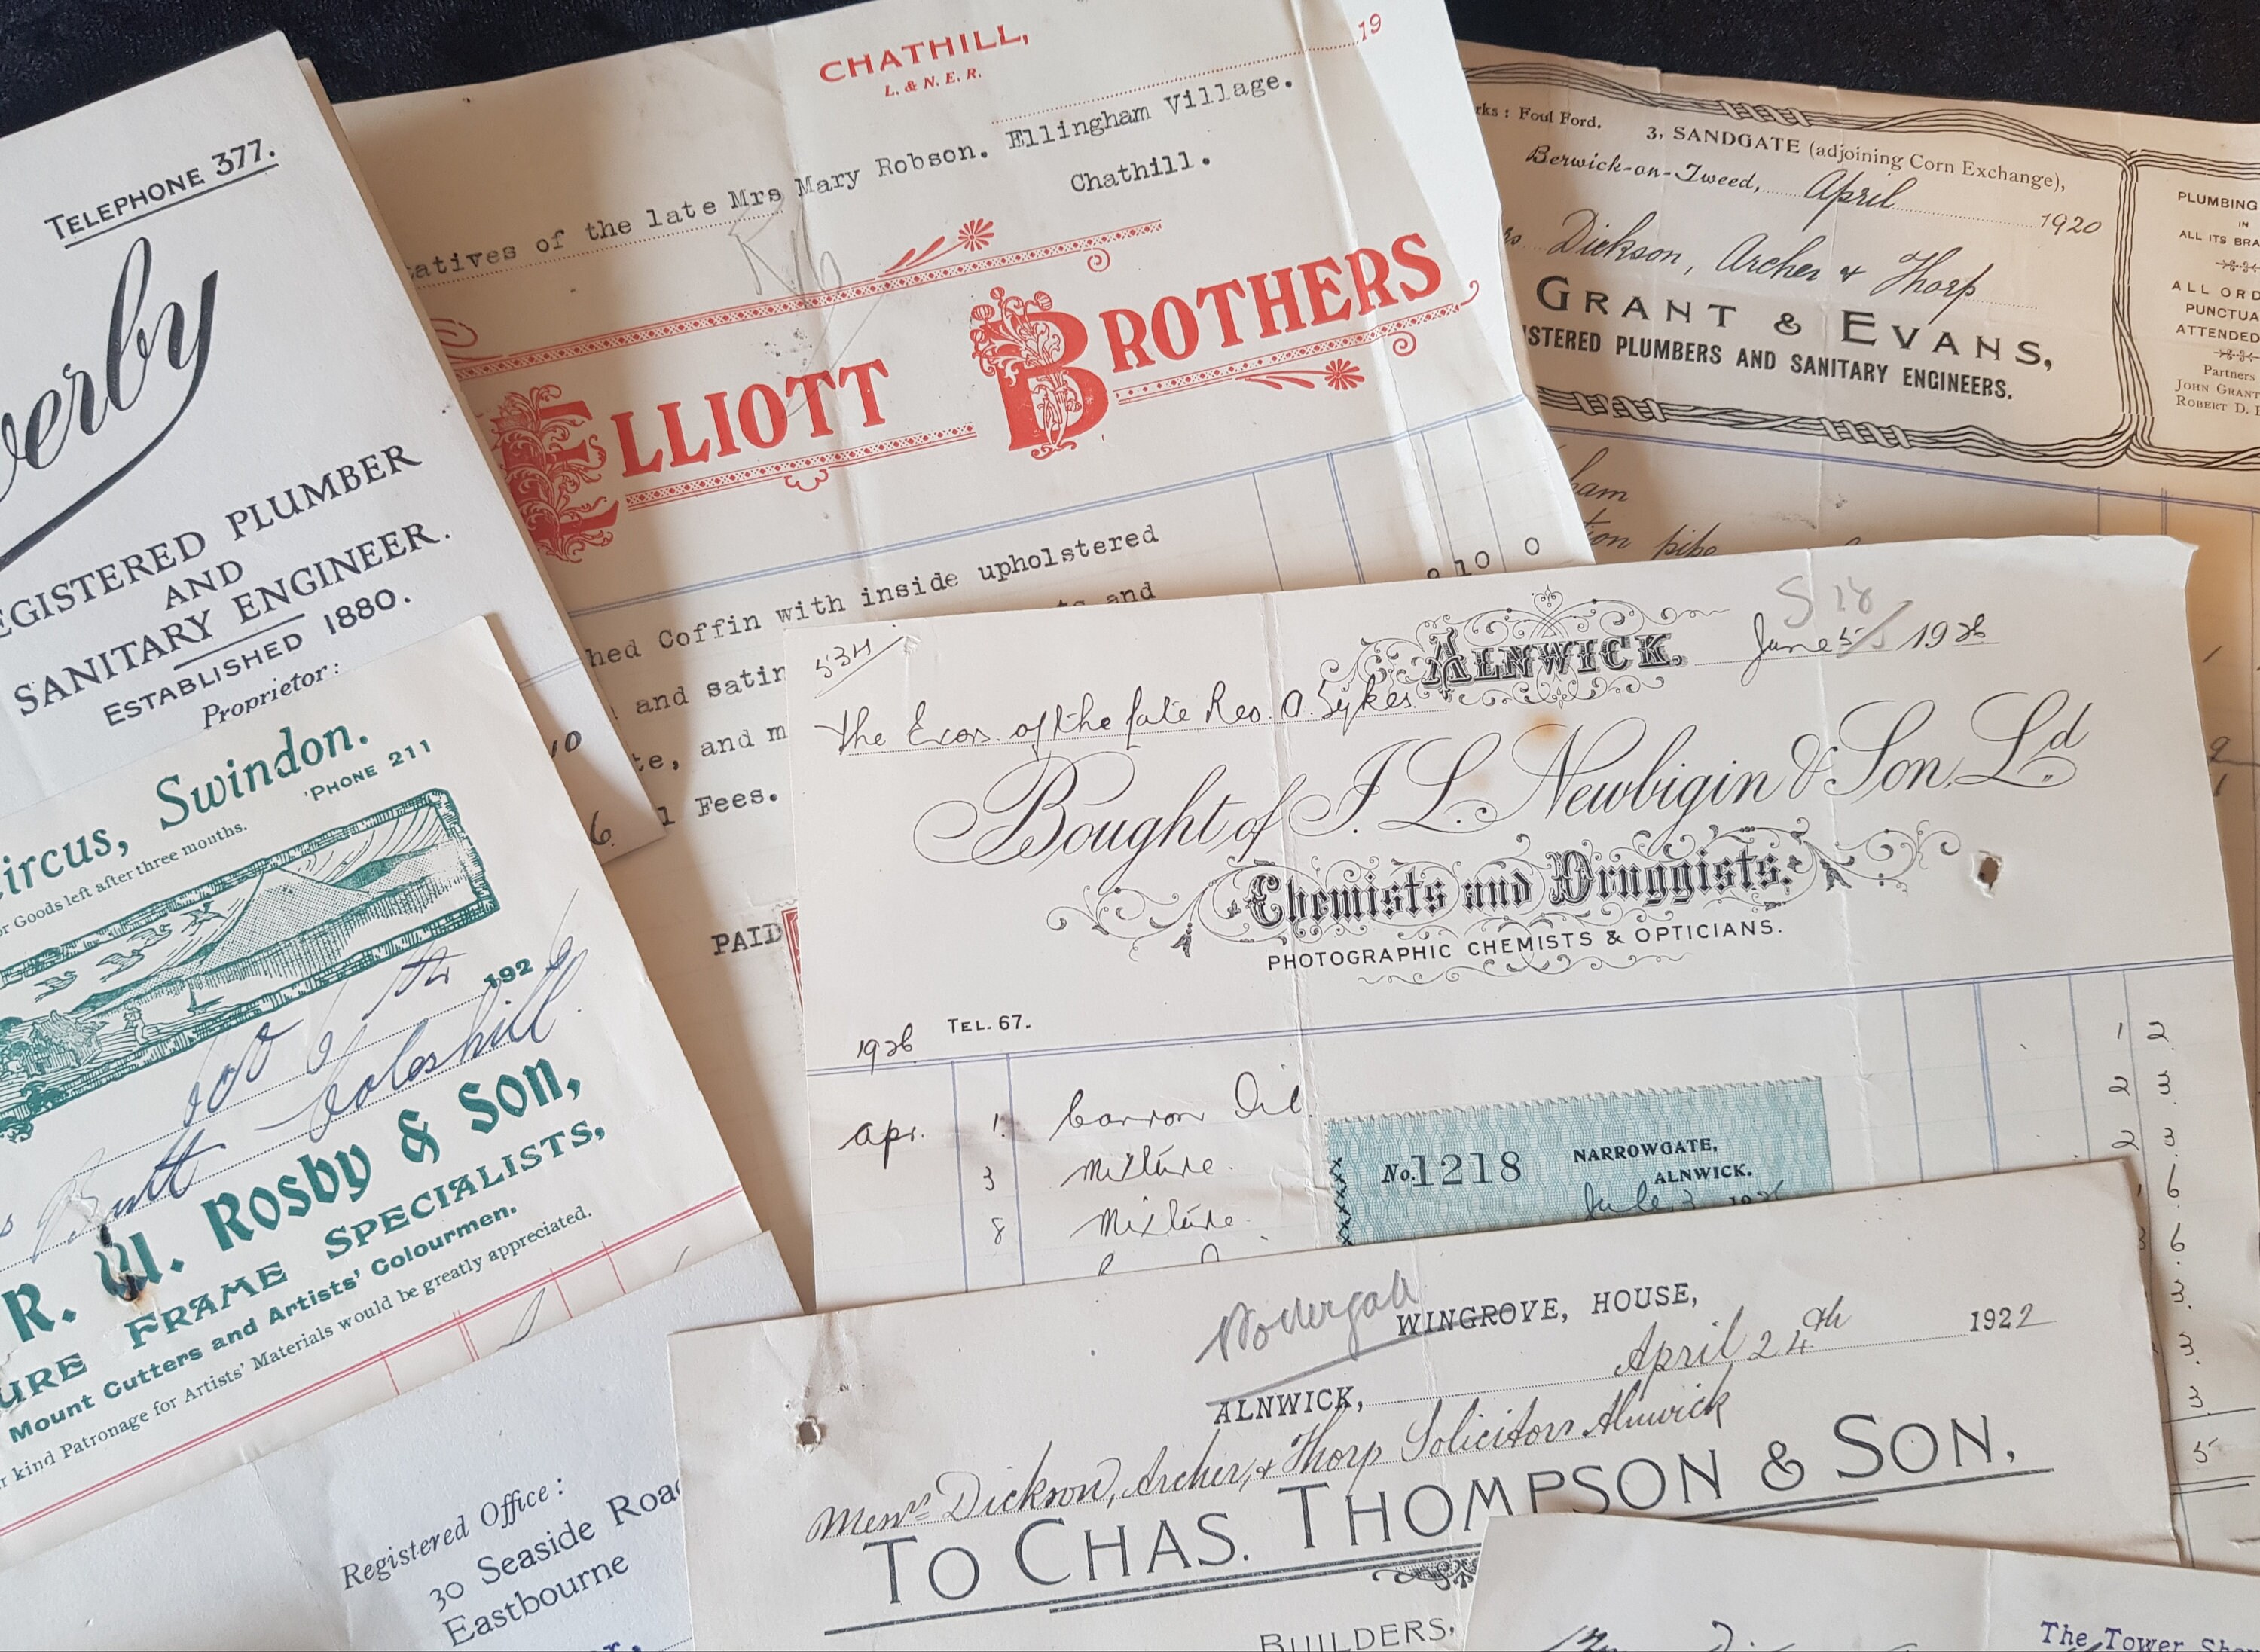 TELEPHONE 377.
REGISTERED PLUMBER
AND
SANITARY ENGINEER.
ESTABLISHED 1880.
Proprietor:
10
6.
CHATHILL,
L. & N. E. R.
19
tatives of the late Mrs Mary Robson. Ellingham Village.
Chathill.
ELLIOTT BROTHERS
hed Coffin with inside upholstered
and
and satin
te, and m
l Fees.
10 0
PAID
rks: Foul Ford.
3, SANDGATE (adjoining Corn Exchange),
Berwick-on-Tweed, April 1920
Dickson, Archer & Thorp
GRANT & EVANS,
ISTERED PLUMBERS AND SANITARY ENGINEERS.
PLUMBING
IN
ALL ITS BRA
ALL ORD
PUNCTUA
ATTENDED
Partners
JOHN GRANT
ROBERT D.
ham
tion pipe
ircus, Swindon.
'PHONE 211
or Goods left after three months.
6th 192
Butt Coleshill
R. W. Rosby & Son,
URE FRAME SPECIALISTS,
Mount Cutters and Artists' Colourmen.
r kind Patronage for Artists' Materials would be greatly appreciated.
534
ALNWICK, June 1926
The Exors. of the late Rev. O. Sykes
Bought of J. L. Newbigin & Son, Ld
Chemists and Druggists.
PHOTOGRAPHIC CHEMISTS & OPTICIANS.
TEL. 67.
1926
1 2
Apr. 1. Carron Oil. 2 3
3 Mixture. 2 3
8 Mixture. 6
6
3
3
3
5
No. 1218
NARROWGATE,
ALNWICK.
WINGROVE, HOUSE,
ALNWICK, April 24th 1922
Messrs Dickson, Archer, & Thorp Solicitors Alnwick
TO CHAS. THOMPSON & SON,
BUILDERS,
Registered Office:
30 Seaside Road
Eastbourne
The Tower